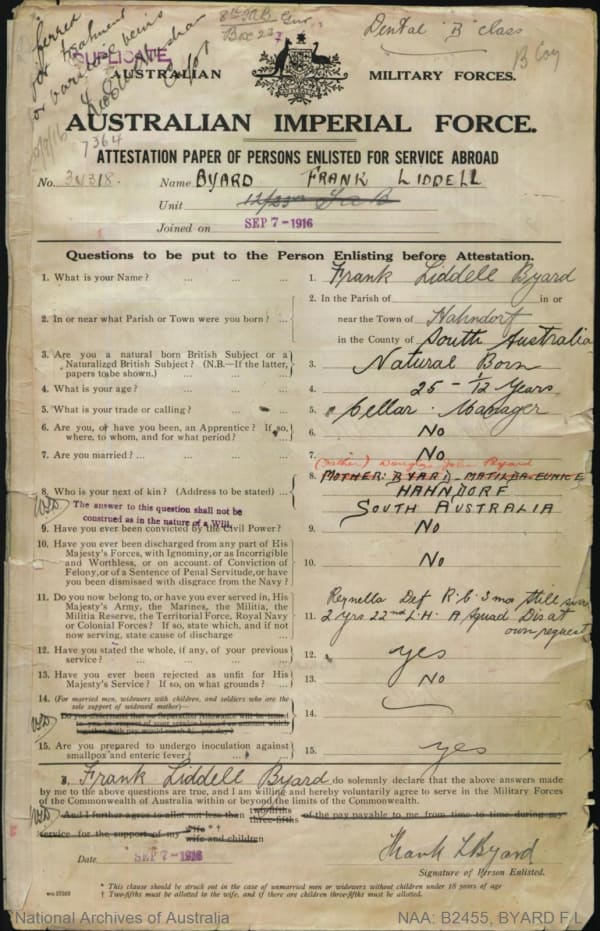 8th M.B Gnr
Dental "B" class
B Coy
for treatment
DUPLICATE
AUSTRALIAN MILITARY FORCES.
AUSTRALIAN IMPERIAL FORCE.
7364
ATTESTATION PAPER OF PERSONS ENLISTED FOR SERVICE ABROAD
No. 30318. Name BYARD FRANK LIDDELL
Unit
Joined on SEP 7-1916
Questions to be put to the Person Enlisting before Attestation.
1. What is your Name? ... ... ... 1. Frank Liddell Byard
2. In or near what Parish or Town were you born? ... 2. In the Parish of in or
near the Town of Hahndorf
in the County of South Australia
3. Are you a natural born British Subject or a
Naturalized British Subject? (N.B.—If the latter,
papers to be shown.) 3. Natural Born
4. What is your age? ... 4. 25 - 1/12 Years
5. What is your trade or calling? ... 5. Cellar Manager
6. Are you, or have you been, an Apprentice? If so,
where, to whom, and for what period? ... 6. No
7. Are you married? ... 7. No
(Father) Douglas John Byard
8. Who is your next of kin? (Address to be stated) ... 8. MOTHER: BYARD - MATILDA EUNICE
HAHNDORF
The answer to this question shall not be
construed as in the nature of a Will.
SOUTH AUSTRALIA
9. Have you ever been convicted by the Civil Power? 9. No
10. Have you ever been discharged from any part of His
Majesty's Forces, with Ignominy, or as Incorrigible
and Worthless, or on account of Conviction of
Felony, or of a Sentence of Penal Servitude, or have
you been dismissed with disgrace from the Navy? 10. No
11. Do you now belong to, or have you ever served in, His
Majesty's Army, the Marines, the Militia, the
Militia Reserve, the Territorial Force, Royal Navy
or Colonial Forces? If so, state which, and if not
now serving, state cause of discharge ...
Reynella Def R.C. 3 mos still
11. 2 yrs 22nd L.H. A Squad Dis at
own request
12. Have you stated the whole, if any, of your previous
service? ... 12. yes
13. Have you ever been rejected as unfit for His
Majesty's Service? If so, on what grounds? ... 13. No
14. (For married men, widowers with children, and soldiers who are the
sole support of widowed mother)—
Do you understand that no Separation Allowance will be issued 14.
15. Are you prepared to undergo inoculation against
smallpox and enteric fever? ... 15. yes
I, Frank Liddell Byard do solemnly declare that the above answers made
by me to the above questions are true, and I am willing and hereby voluntarily agree to serve in the Military Forces
of the Commonwealth of Australia within or beyond the limits of the Commonwealth.
And I further agree to allot not less than two-fifths three-fifths of the pay payable to me from time to time during my
service for the support of my wife*† wife and children
Date SEP 7-1916 Frank L Byard
Signature of Person Enlisted.
* This clause should be struck out in the case of unmarried men or widowers without children under 18 years of age
† Two-fifths must be allotted to the wife, and if there are children three-fifths must be allotted.
National Archives of Australia NAA: B2455, BYARD F L